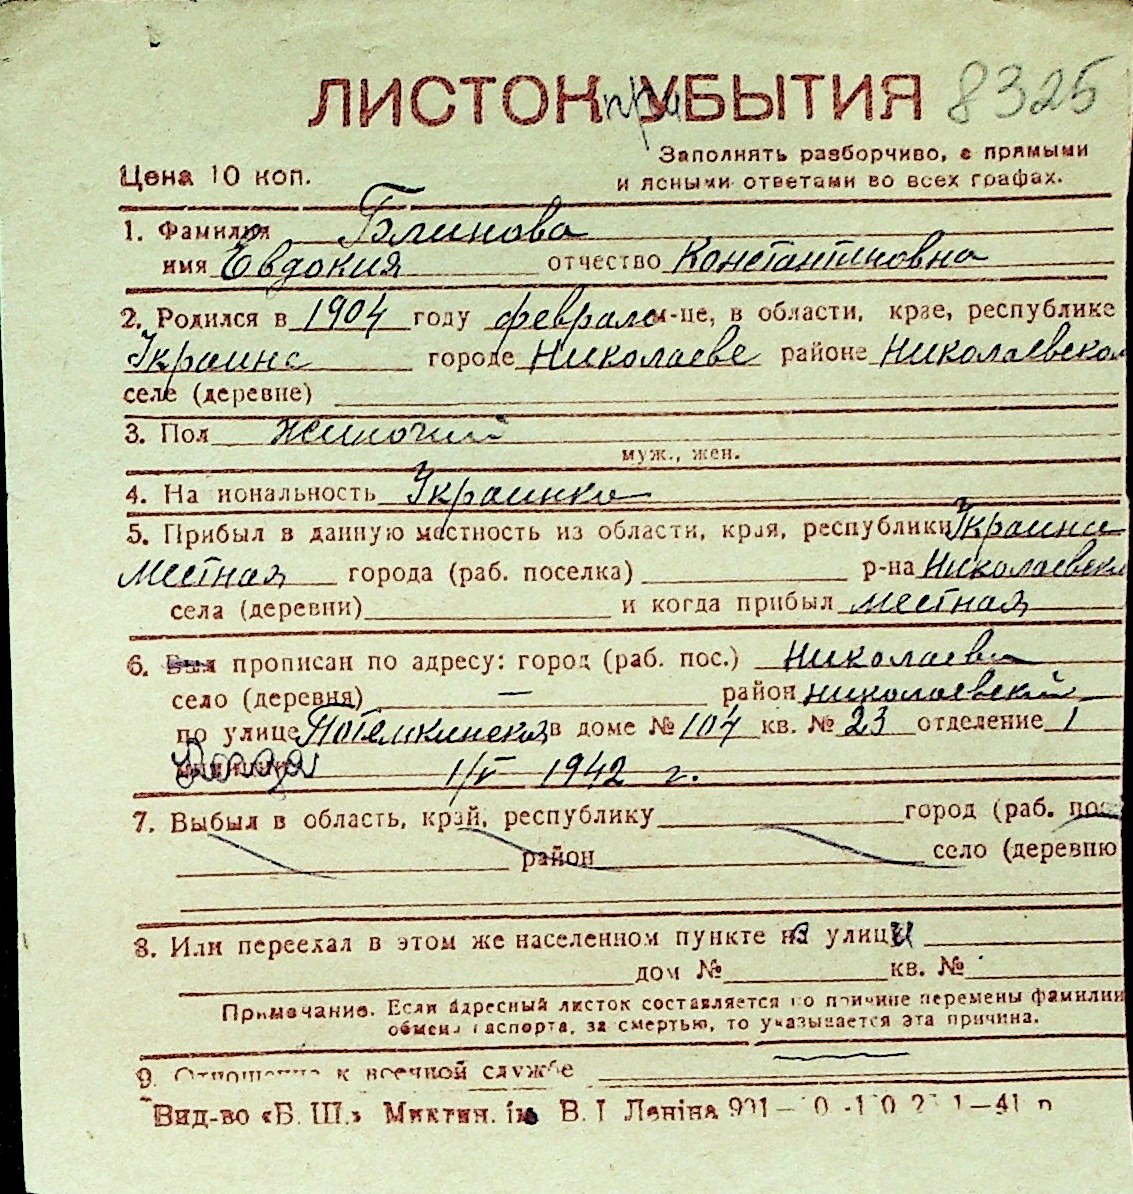 ЛИСТОК УБЫТИЯ 8325
при
Заполнять разборчиво, с прямыми
Цена 10 коп.
и ясными ответами во всех графах.
1. Фамилия Блинова
имя Евдокия отчество Константиновна
2. Родился в 1904 году феврале м-це, в области, крае, республике
Украина городе Николаеве районе Николаевском
селе (деревне)
3. Пол жиночий
муж., жен.
4. На иональность Украинка
5. Прибыл в данную местность из области, края, республики Украина
местная города (раб. поселка) р-на Николаевск
села (деревни) и когда прибыл местная
6. Был прописан по адресу: город (раб. пос.) Николаев
село (деревня) — район николаевский
по улице Потемкинская в доме № 104 кв. № 23 отделение 1
1/V 1942 г.
7. Выбыл в область, край, республику город (раб. пос
район село (деревню
8. Или переехал в этом же населенном пункте на улицу
дом № кв. №
Примечание. Если адресный листок составляется по причине перемены фамилии
обмена паспорта, за смертью, то указывается эта причина.
9. Отношение к военной службе
Вид-во «Б. Ш.» Миктин. ім В. І Леніна